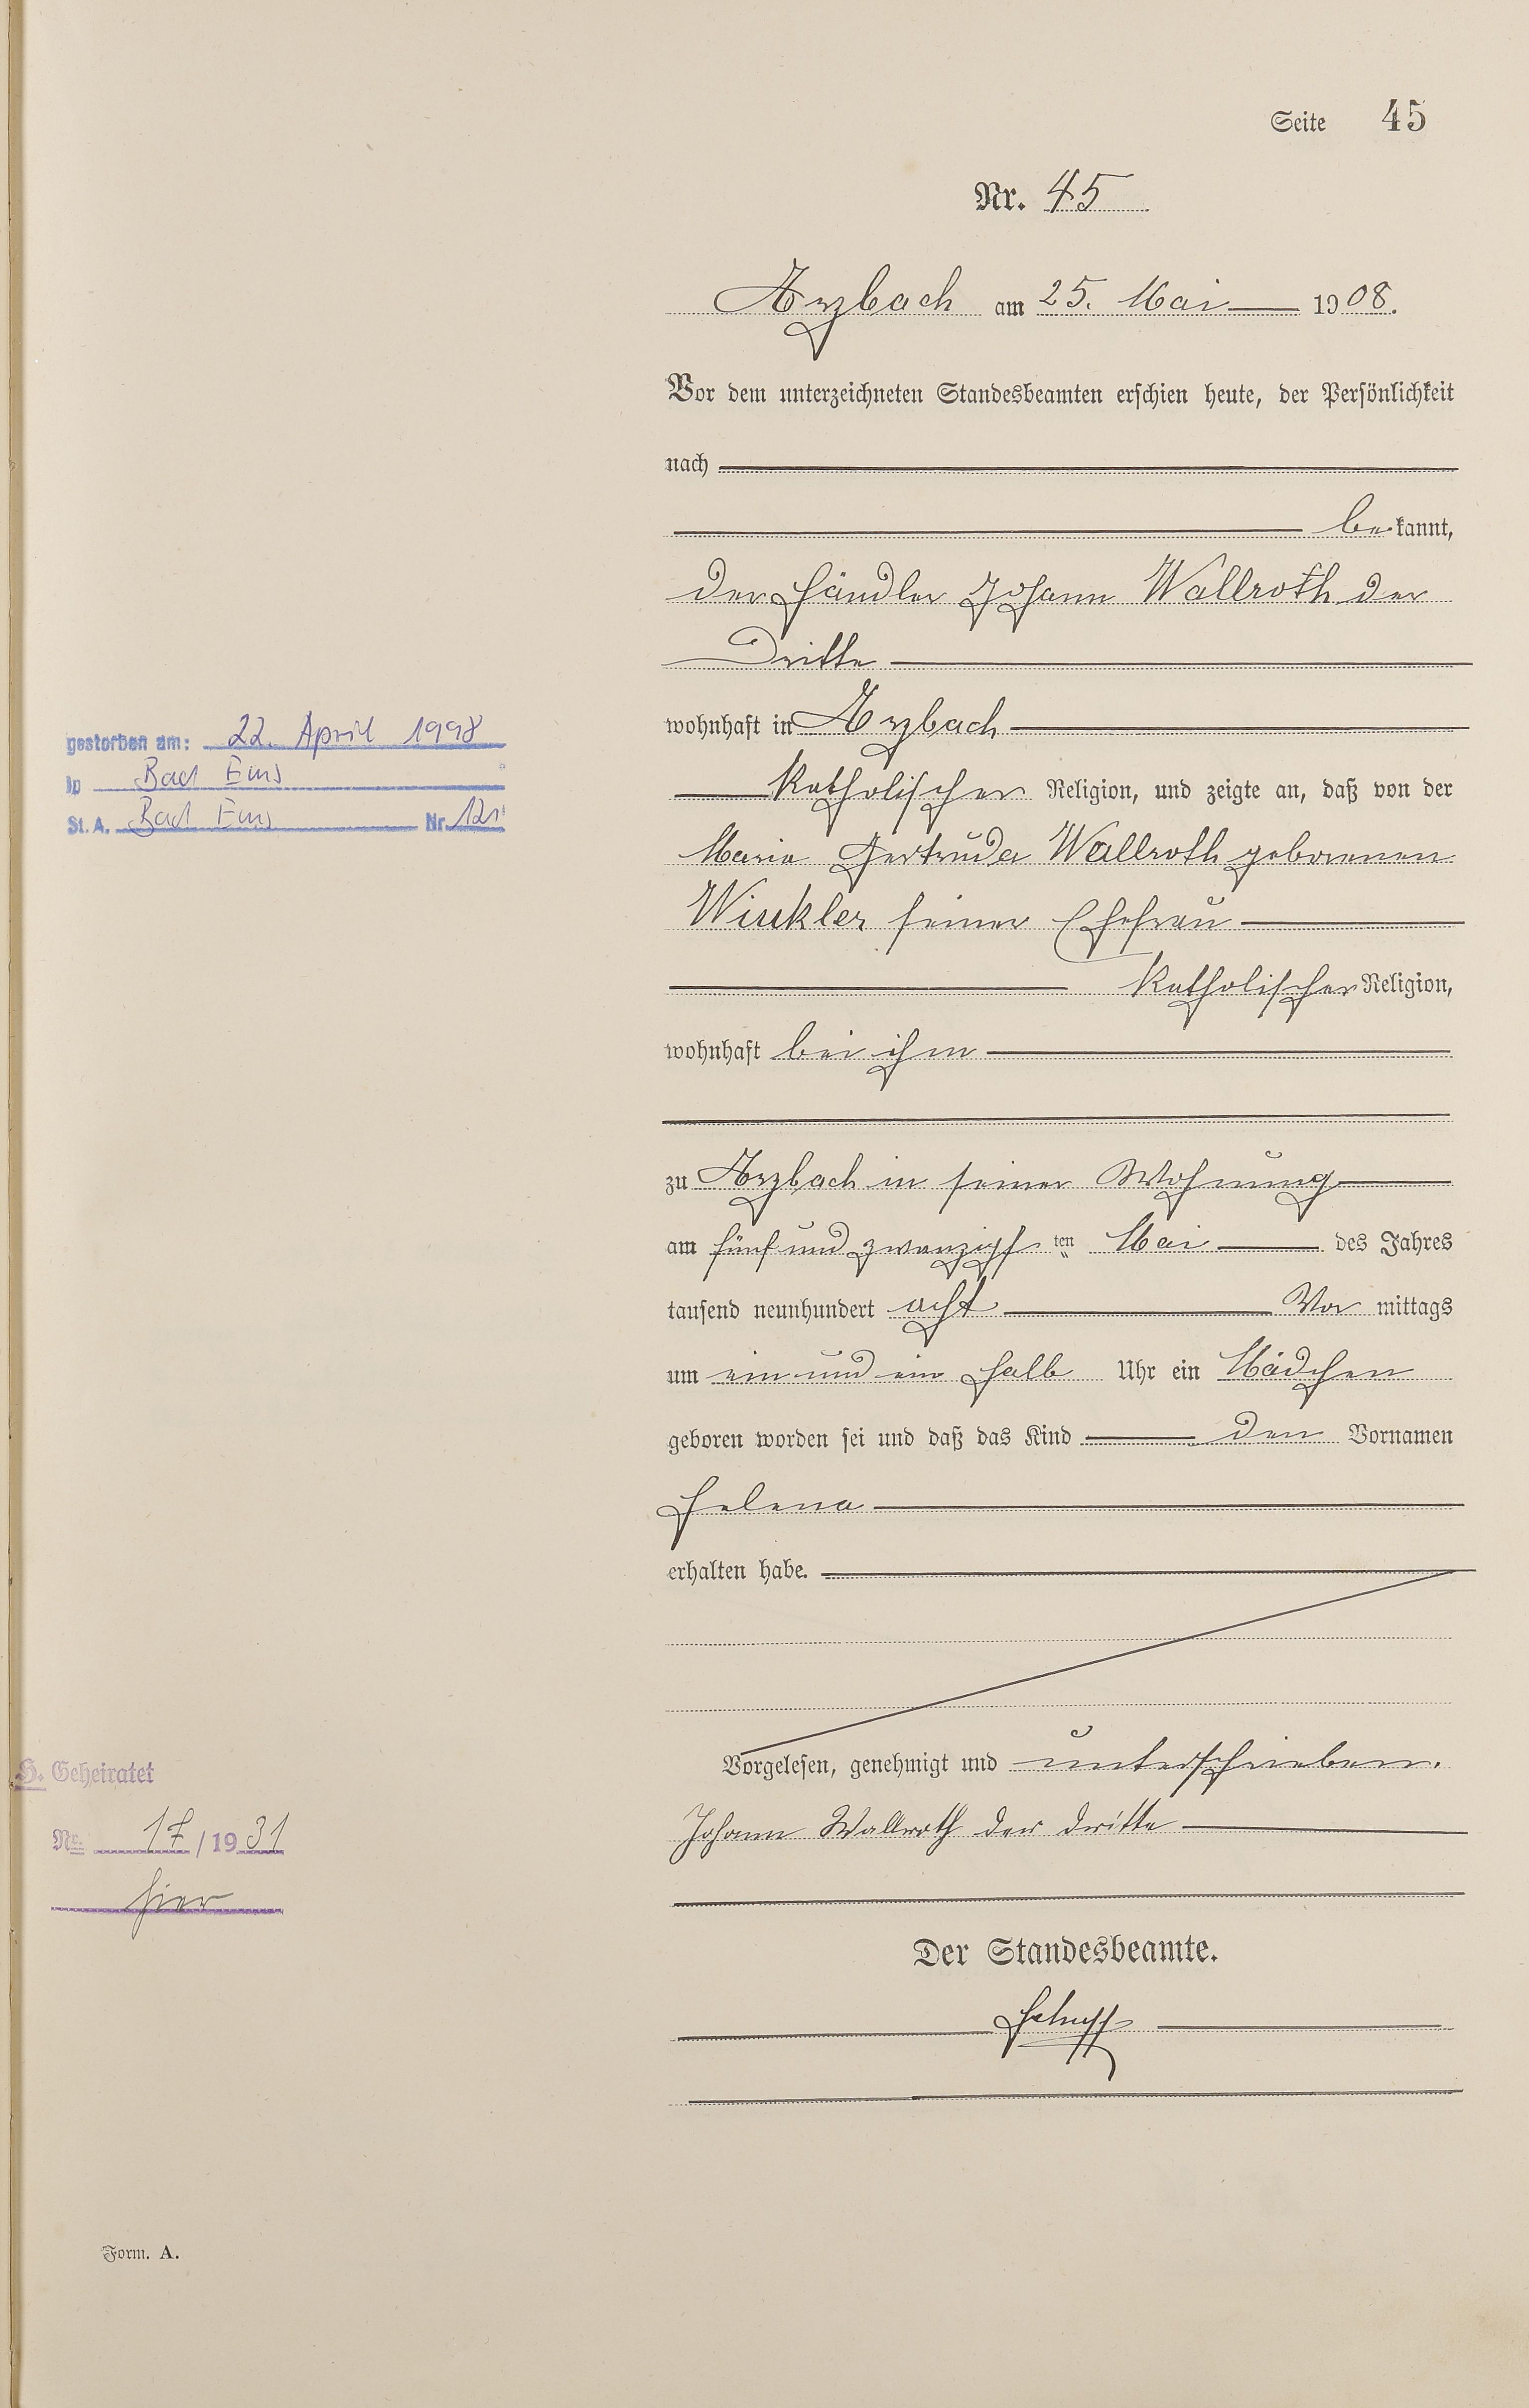 Seite 45
Nr. 45
Arzbach am 25. Mai 1908.
Vor dem unterzeichneten Standesbeamten erschien heute, der Persönlichkeit
nach
bekannt,
der Händler Johann Wallroth der
Dritte
wohnhaft in Arzbach
katholischer Religion, und zeigte an, daß von der
Maria Gertruda Wallroth geborenen
Winkler seiner Ehefrau
katholischer Religion,
wohnhaft bei ihm
zu Arzbach in seiner Wohnung
am fünf und zwanzigsten Mai des Jahres
tausend neunhundert acht Vor mittags
um ein und ein halb Uhr ein Mädchen
geboren worden sei und daß das Kind den Vornamen
Helena
erhalten habe.
Vorgelesen, genehmigt und unterschrieben.
Johann Wallroth der dritte
Der Standesbeamte.
gestorben am: 22. April 1998
in Bad Ems
St. A. Bad Ems Nr. 121
H. Geheiratet
Nr. 17/1931
hier
Form. A.